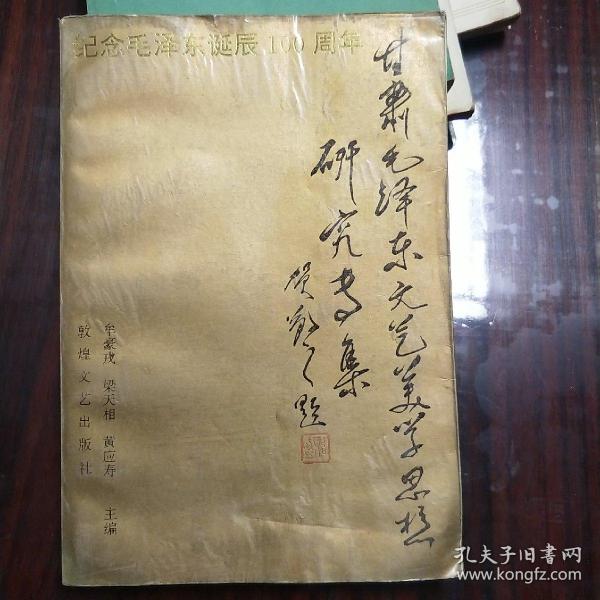 纪念毛泽东诞辰100周年
甘肃毛泽东文艺美学思想
研究专集
贺敬之题
牟豪戎 梁天相 黄应寿 主编
敦煌文艺出版社
孔夫子旧书网
www.kongfz.com